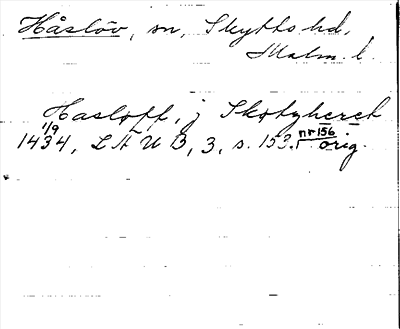 Håslöv, sn, Skytts hd,
Malm. l.
Hasløff, j Skøtzheret
1/9 1434, LÄUB, 3, s. 153. nr 156 orig.